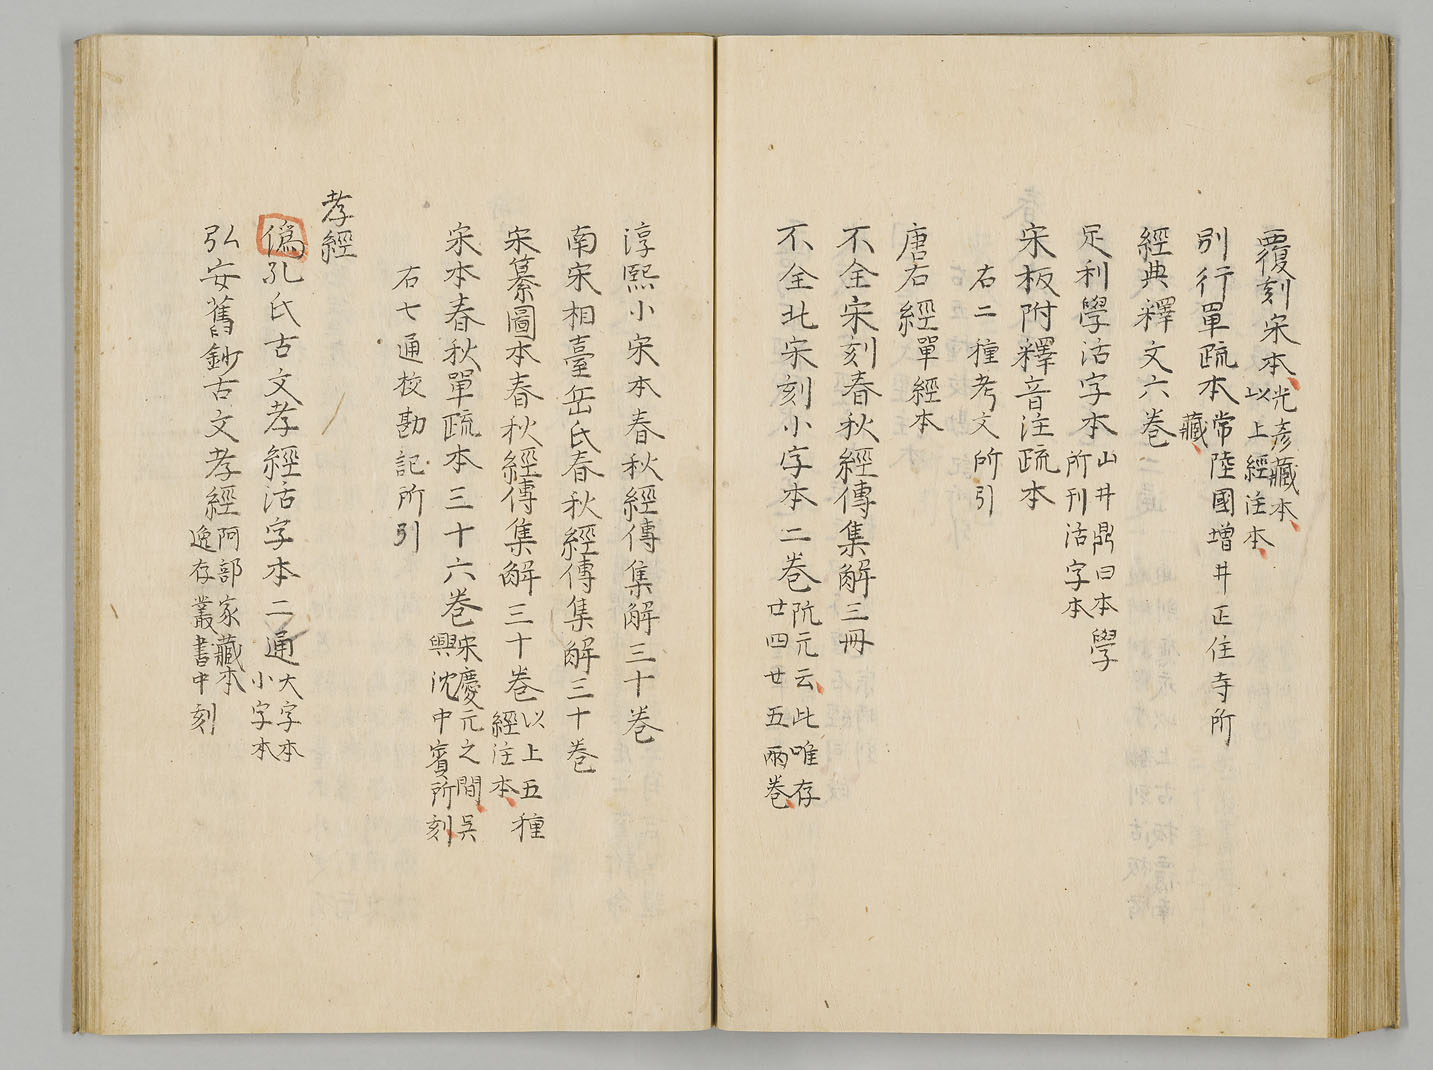 覆刻宋本光彦藏本
以上經注本
別行單疏本常陸國增井正住寺所
藏
經典釋文六巻
足利學活字本山井鼎曰本學
所刊活字本
宋板附釋音注疏本
右二種考文所引
唐石經單經本
不全宋刻春秋經傳集解三冊
不全北宋刻小字本二巻阮元云此唯存
廿四廿五兩巻
淳熙小宋本春秋經傳集解三十巻
南宋相臺岳氏春秋經傳集解三十巻
宋纂圖本春秋經傳集解三十巻以上五種
經注本
宋本春秋單疏本三十六巻宋慶元之間吳
興沈中賓所刻
右七通校勘記所引
孝經
僞孔氏古文孝經活字本二通大字本
小字本
弘安舊鈔古文孝經阿部家藏本
逸存叢書中刻